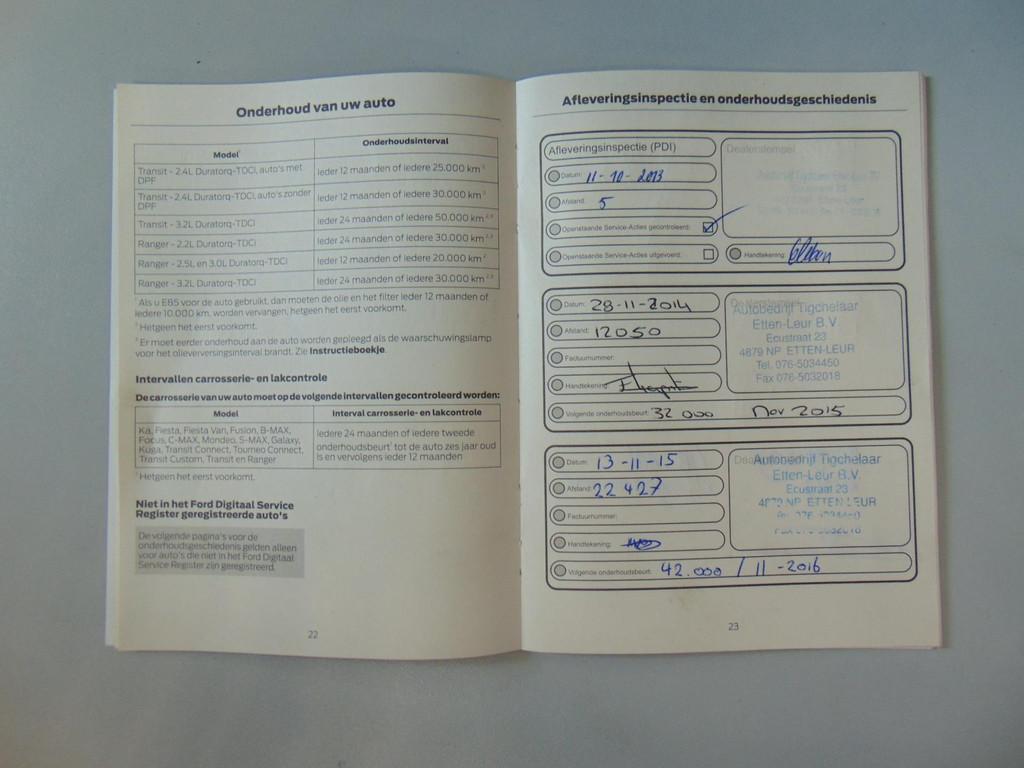 Onderhoud van uw auto
Model¹
Onderhoudsinterval
Transit - 2.4L Duratorq-TDCi, auto's met DPF
Ieder 12 maanden of iedere 25.000 km
Transit - 2.4L Duratorq-TDCi, auto's zonder DPF
Ieder 12 maanden of iedere 30.000 km
Transit - 3.2L Duratorq-TDCi
Ieder 24 maanden of iedere 50.000 km
Ranger - 2.2L Duratorq-TDCi
Ieder 24 maanden of iedere 30.000 km
Ranger - 2.5L en 3.0L Duratorq-TDCi
Ieder 12 maanden of iedere 20.000 km
Ranger - 3.2L Duratorq-TDCi
Ieder 24 maanden of iedere 30.000 km
¹ Als u E85 voor de auto gebruikt, dan moeten de olie en het filter ieder 12 maanden of
iedere 10.000 km, worden vervangen, hetgeen het eerst voorkomt.
² Hetgeen het eerst voorkomt.
³ Er moet eerder onderhoud aan de auto worden gepleegd als de waarschuwingslamp
voor het olieverversingsinterval brandt. Zie Instructieboekje.
Intervallen carrosserie- en lakcontrole
De carrosserie van uw auto moet op de volgende intervallen gecontroleerd worden:
Model
Interval carrosserie- en lakcontrole
Ka, Fiesta, Fiesta Van, Fusion, B-MAX,
Focus, C-MAX, Mondeo, S-MAX, Galaxy,
Kuga, Transit Connect, Tourneo Connect,
Transit Custom, Transit en Ranger
Iedere 24 maanden of iedere tweede
onderhoudsbeurt¹ tot de auto zes jaar oud
is en vervolgens ieder 12 maanden
¹ Hetgeen het eerst voorkomt.
Niet in het Ford Digitaal Service
Register geregistreerde auto's
De volgende pagina's voor de
onderhoudsgeschiedenis gelden alleen
voor auto's die niet in het Ford Digitaal
Service Register zijn geregistreerd.
22
Afleveringsinspectie en onderhoudsgeschiedenis
Afleveringsinspectie (PDI)
Dealerstempel
Datum: 11-10-2013
Afstand: 5
Openstaande Service-Acties gecontroleerd:
Openstaande Service-Acties uitgevoerd:
Handtekening:
Datum: 28-11-2014
Afstand: 12050
Factuurnummer:
Handtekening:
Volgende onderhoudsbeurt: 32 000 Nov 2015
Autobedrijf Tigchelaar
Etten-Leur B.V.
Ecustraat 23
4879 NP ETTEN-LEUR
Tel. 076-5034450
Fax 076-5032018
Datum: 13-11-15
Afstand: 22 427
Factuurnummer:
Handtekening:
Volgende onderhoudsbeurt: 42.000 / 11-2016
Autobedrijf Tigchelaar
Etten-Leur B.V.
Ecustraat 23
4879 NP ETTEN-LEUR
23